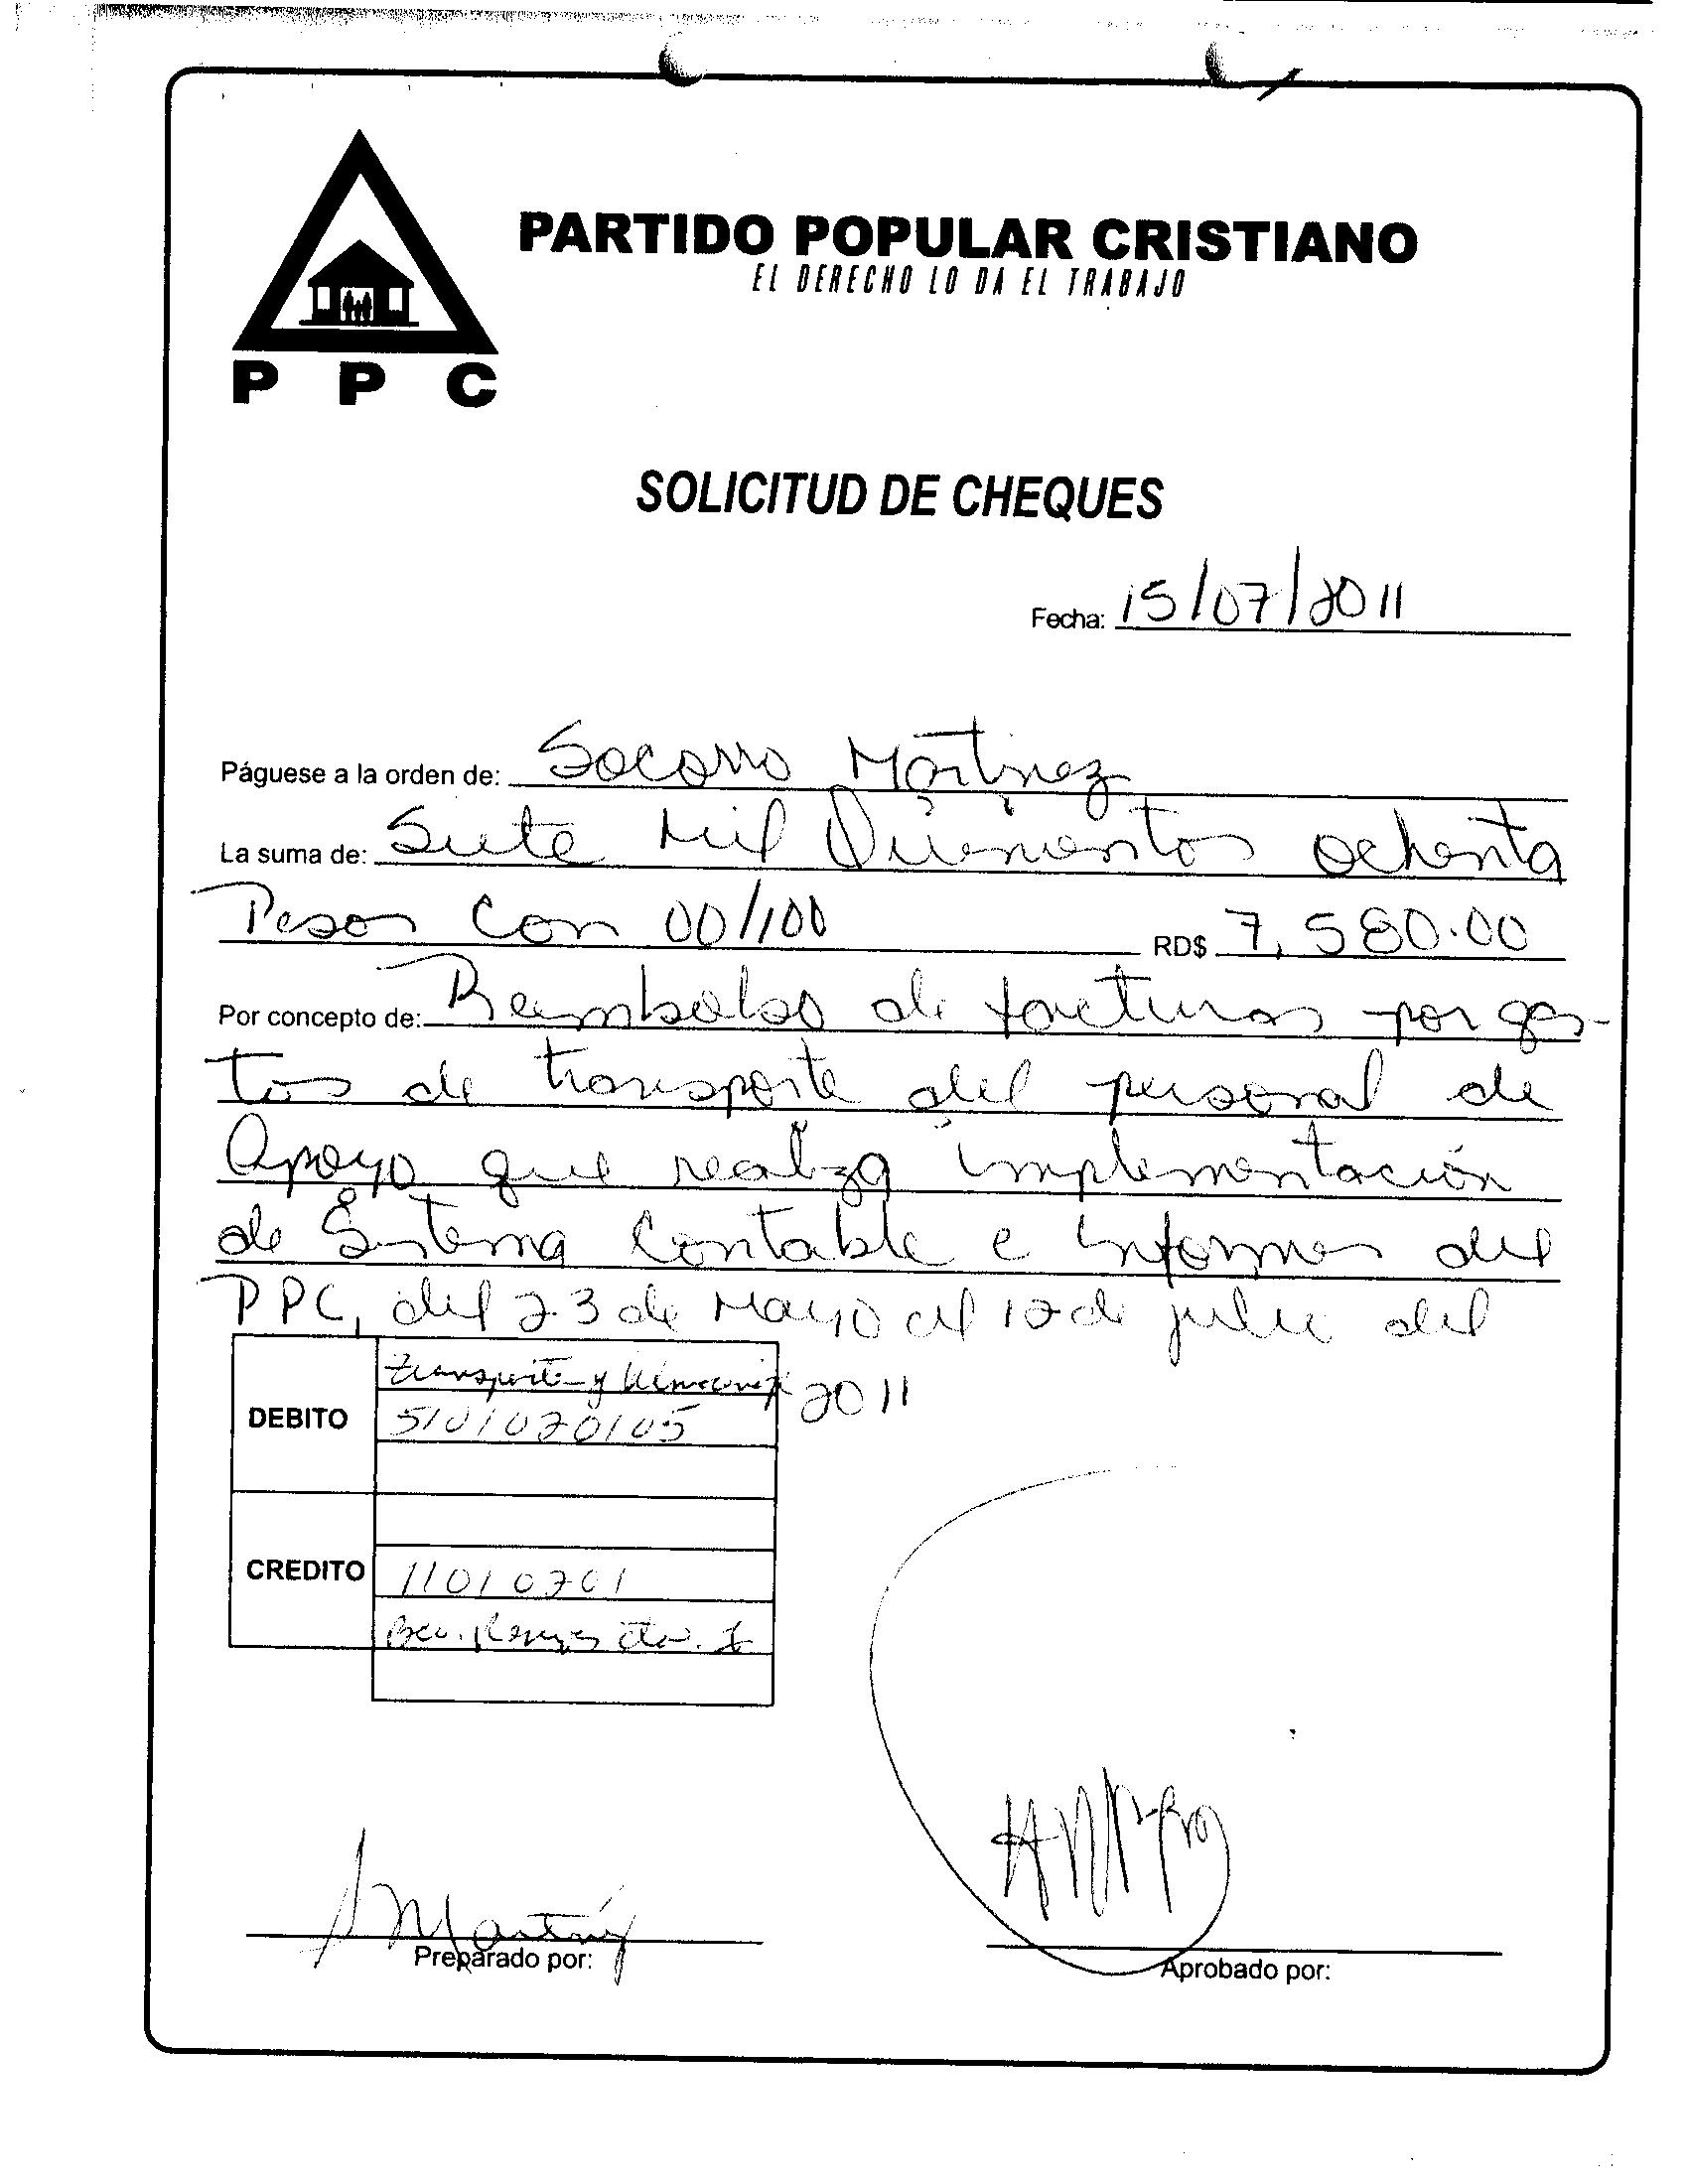 PARTIDO POPULAR CRISTIANO
EL DERECHO LO DA EL TRABAJO
P P C
SOLICITUD DE CHEQUES
Fecha: 15/07/2011
Páguese a la orden de: Socorro Martinez
La suma de: Siete Mil Quinientos ochenta
Pesos con 00/100 RD$ 7,580.00
Por concepto de: Reembolso de facturas por gas-
tos de transporte del personal de
Apoyo que realiza implementación
de Sistema Contable e informes del
PPC, del 23 de Mayo al 12 de julio del
2011
Transporte y
DEBITO 5101020105
CREDITO 11010201
Preparado por:
Aprobado por: